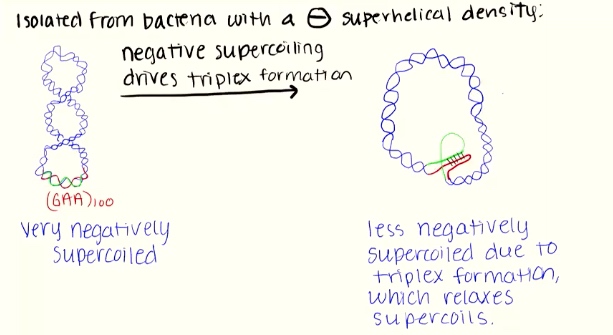 Isolated from bacteria with a ⊖ superhelical density:
negative supercoiling
drives triplex formation
(GAA)100
very negatively
supercoiled
less negatively
supercoiled due to
triplex formation,
which relaxes
supercoils.